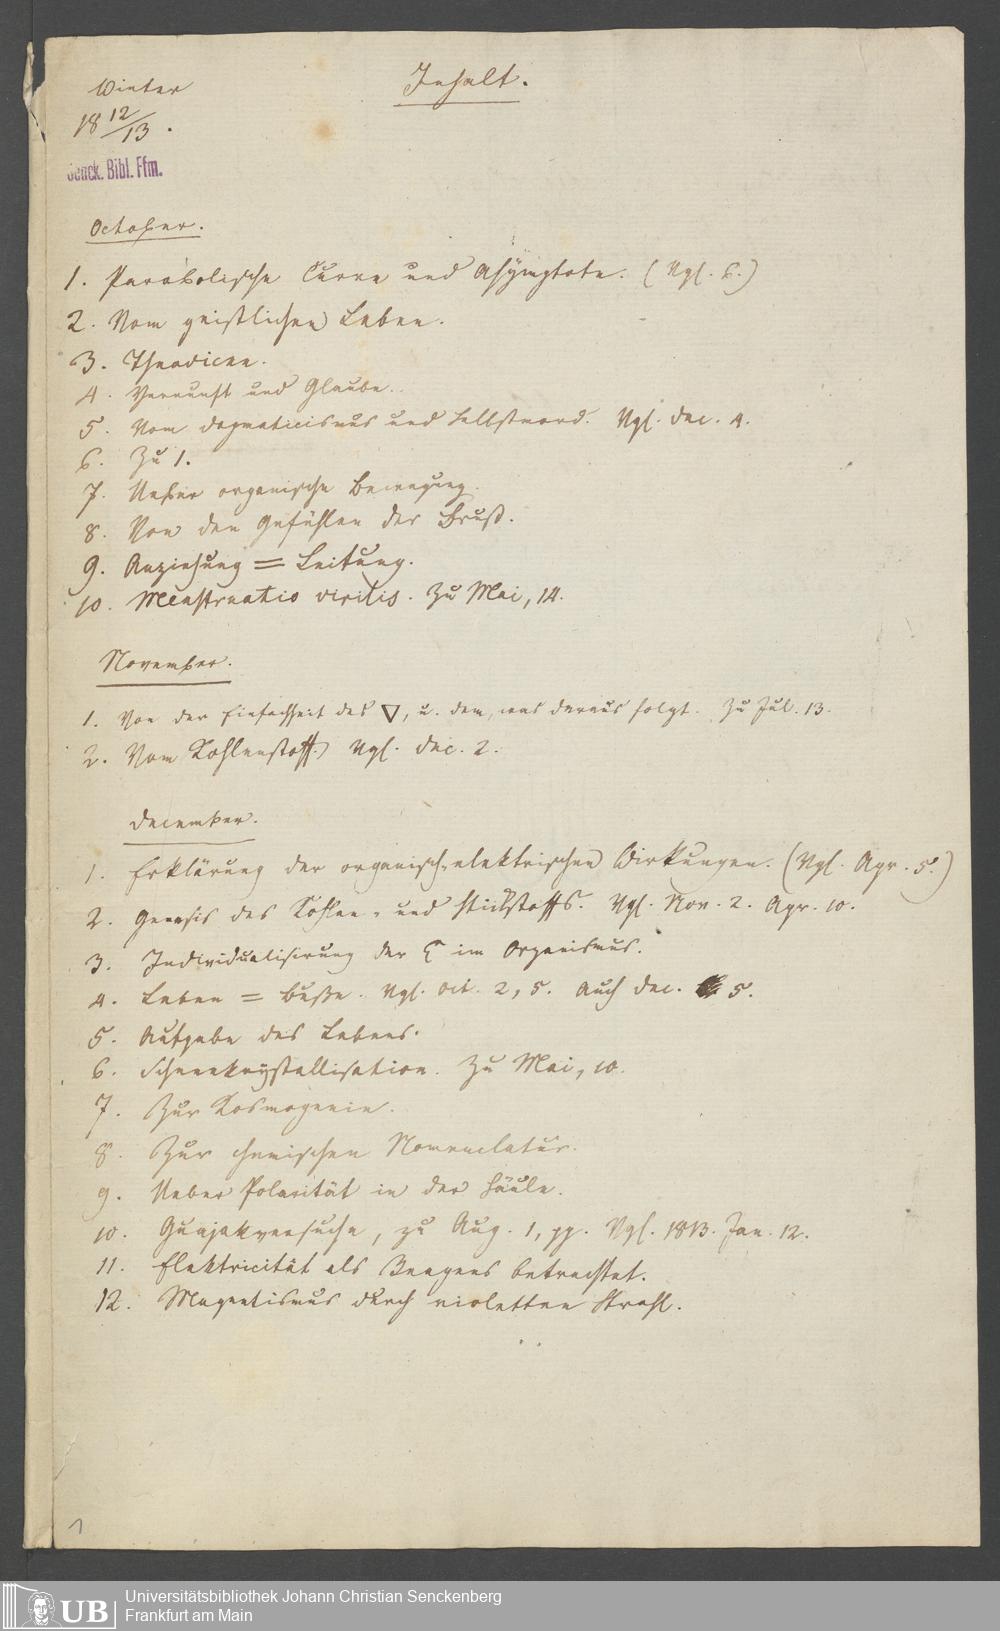 Winter
Inhalt.
18 12/13.
Senck. Bibl. Ffm.
October.
1. Parabolische Curve und Asÿmptote. (Vgl. 6.)
2. Vom geistlichen Leben.
3. Theodicee.
4. Vernunft und Glaube.
5. Vom Dogmaticismus und Selbstmord. Vgl. Dec. 4.
6. Zu 1.
7. Ueber organische Bewegung.
8. Von den Gefühlen der Brust.
9. Anziehung = Leitung.
10. Menstruatio virilis. Zu Mai, 14.
November.
1. Von der Einfachheit des ▽, u. dem, was daraus folgt. Zu Jul. 13.
2. Vom Kohlenstoff. Vgl. Dec. 2.
December.
1. Erklärung der organisch-elektrischen Wirkungen. (Vgl. Apr. 5.)
2. Genesis des Kohlen- und Stickstoffs. Vgl. Nov. 2. Apr. 10.
3. Individualisirung der im Organismus.
4. Leben = Buße. Vgl. Oct. 2, 5. Auch Dec. 5.
5. Aufgabe des Lebens.
6. Schneekrystallisation. Zu Mai, 10.
7. Zur Kosmogenie.
8. Zur chemischen Nomenclatur.
9. Ueber Polarität in der Säule.
10. Guajakversuche, zu Aug. 1, pp. Vgl. 1813. Jan. 12.
11. Elektricität als Reagens betrachtet.
12. Magnetismus durch violetten Strahl.
1
UB
Universitätsbibliothek Johann Christian Senckenberg
Frankfurt am Main